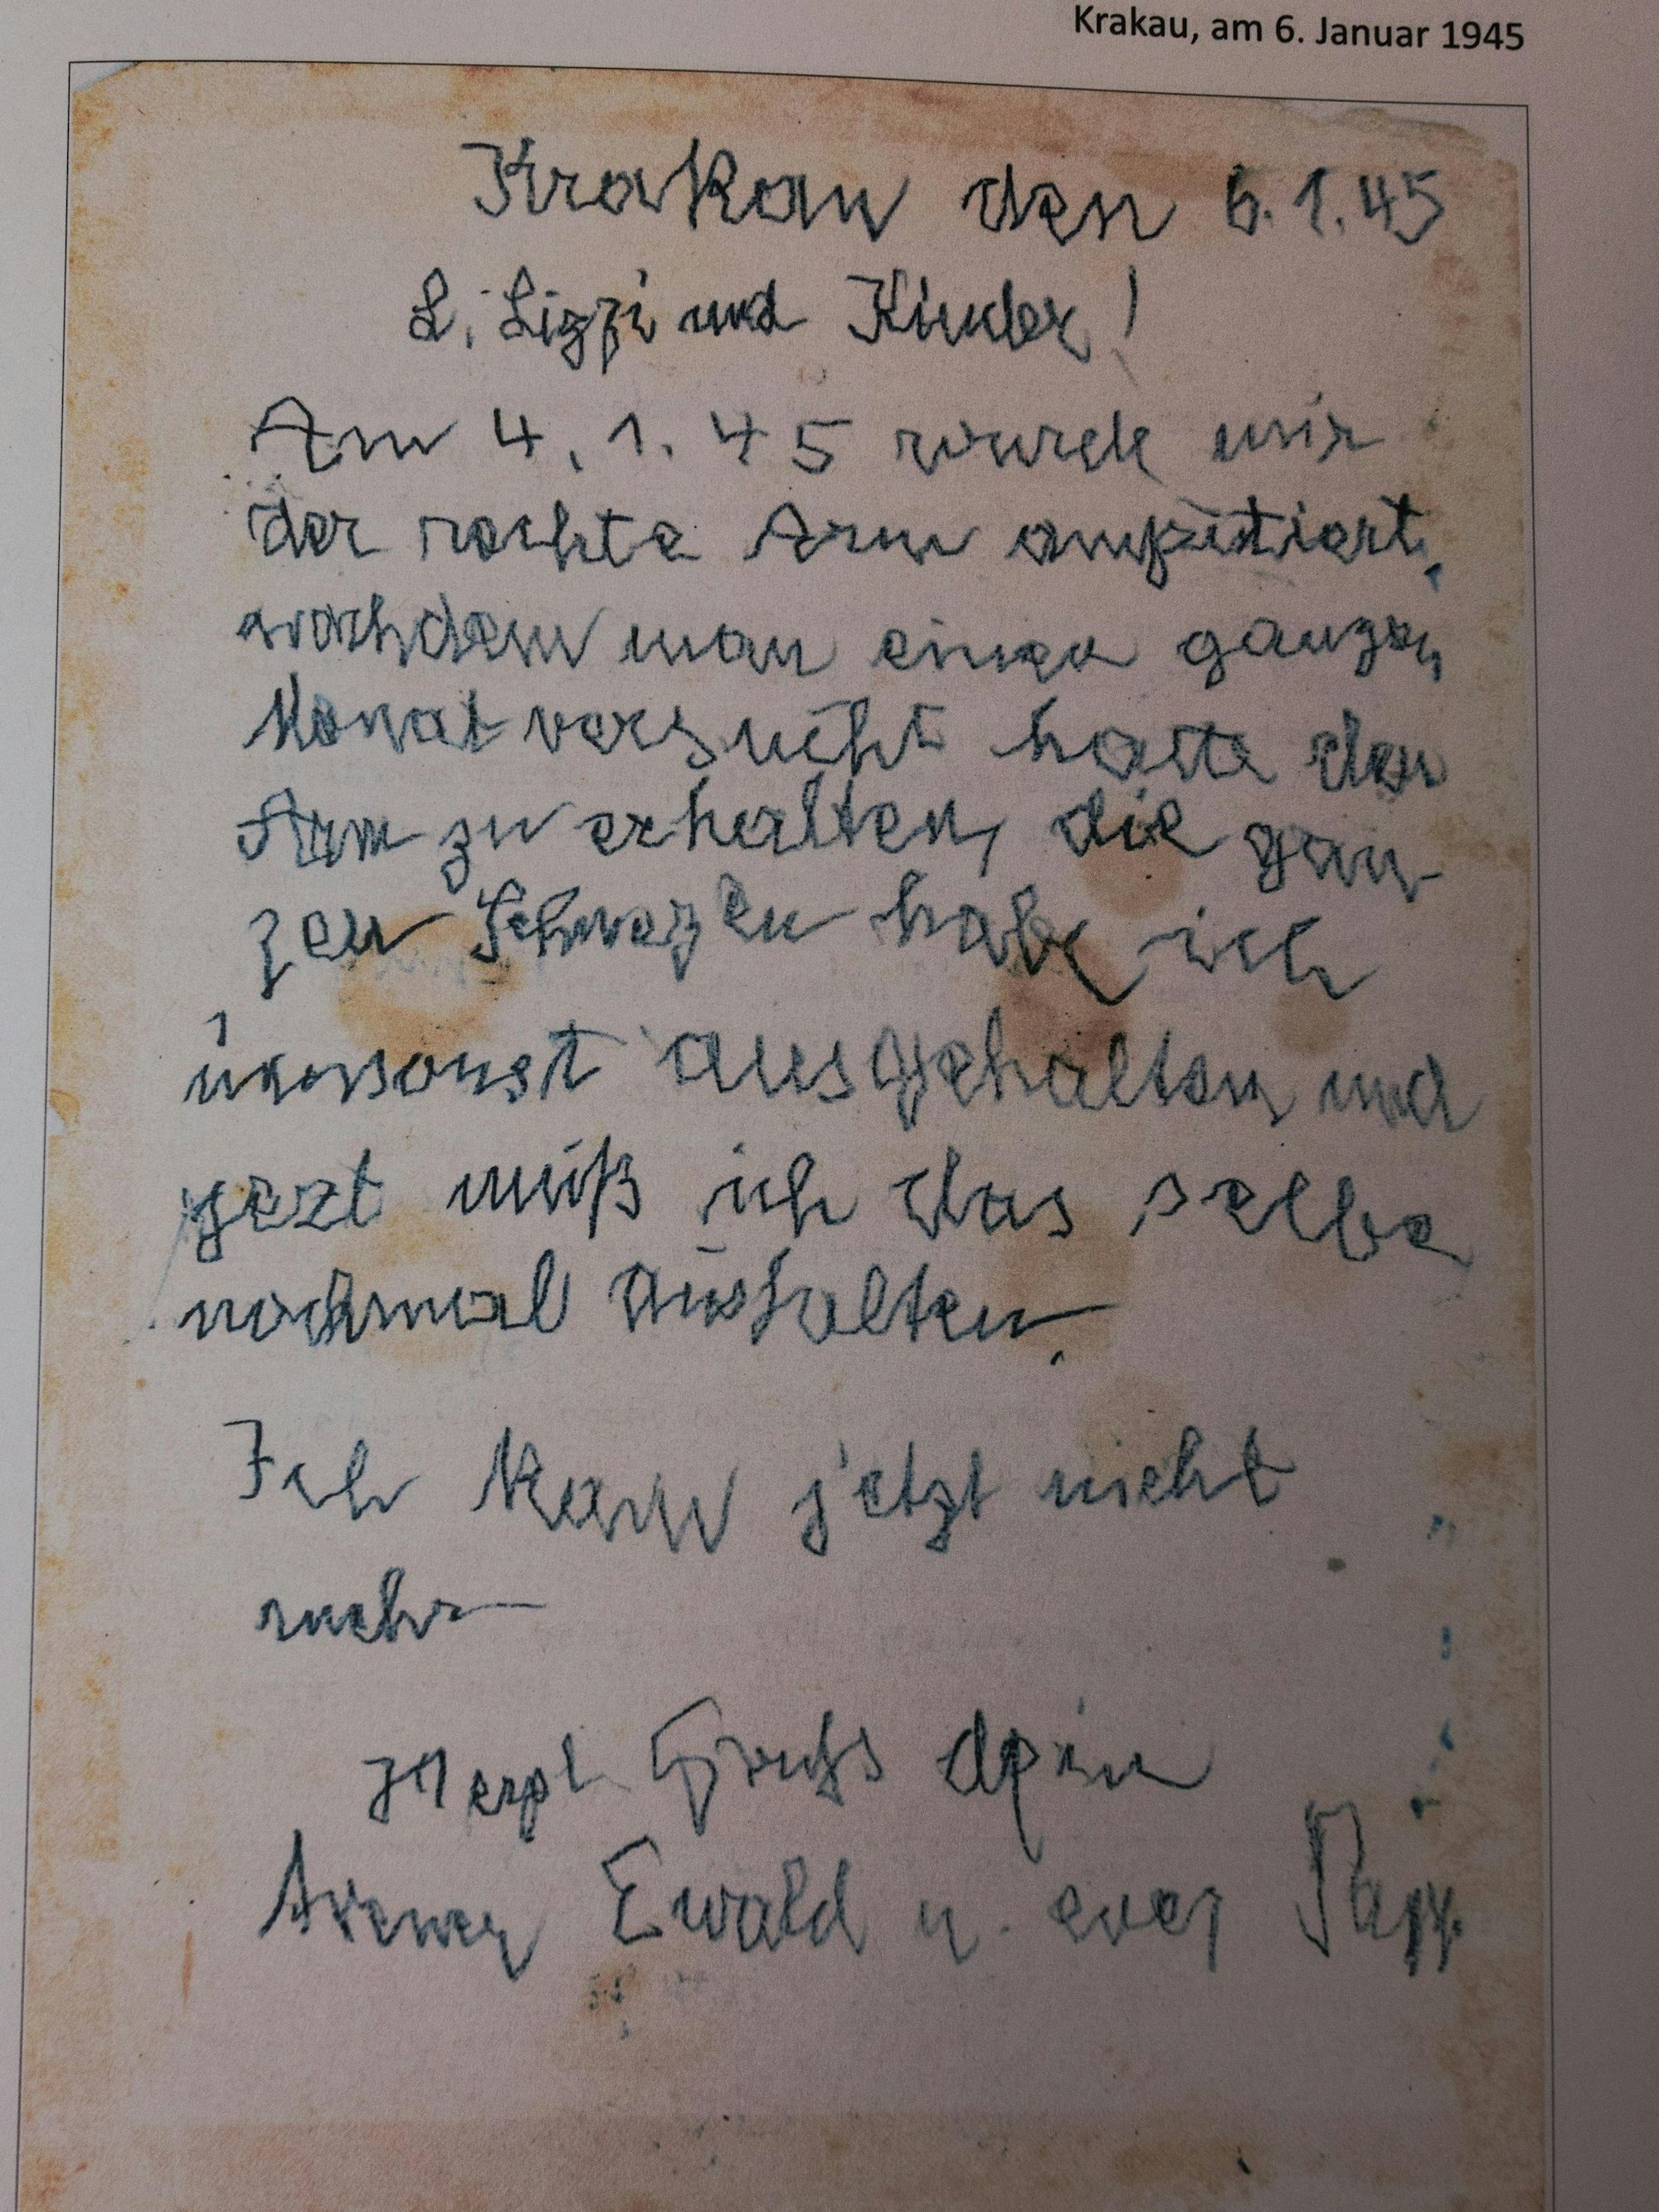 Krakau, am 6. Januar 1945
Krakau den 6.1.45
L. Lizzi und Kinder!
Am 4.1.45 wurde mir
der rechte Arm amputiert,
nachdem man einen ganzen
Monat versucht hatte den
Arm zu erhalten, die gan
zen Schmerzen habe ich
umsonst ausgehalten und
jezt muß ich das selbe
nochmal aushalten.
Ich kann jetzt nicht
mehr
Herzl. Gruß dein
Armer Ewald u. euer Papp